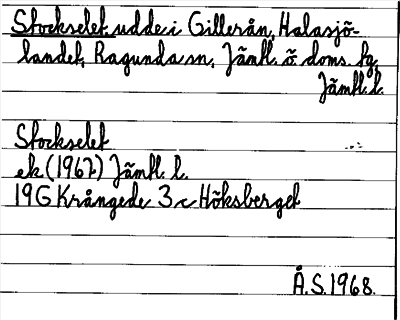 Stockselet udde i Gillerån, Halasjö-
landet, Ragunda sn, Jämtl. ö. doms. fg,
Jämtl. l.
Stockselet
ek. (1967) Jämtl. l.
19G Krångede 3 c Höksberget
Å.S. 1968.